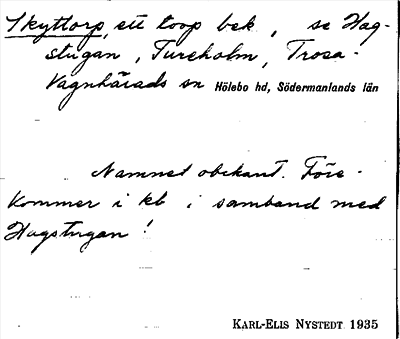 Skyttorp, ett torp bek, se Hag-
stugan, Tureholm, Trosa-
Vagnhärads sn Hölebo hd, Södermanlands län
Namnet obekant. Före-
kommer i kb i samband med
Hagstugan!
KARL-ELIS NYSTEDT 1935